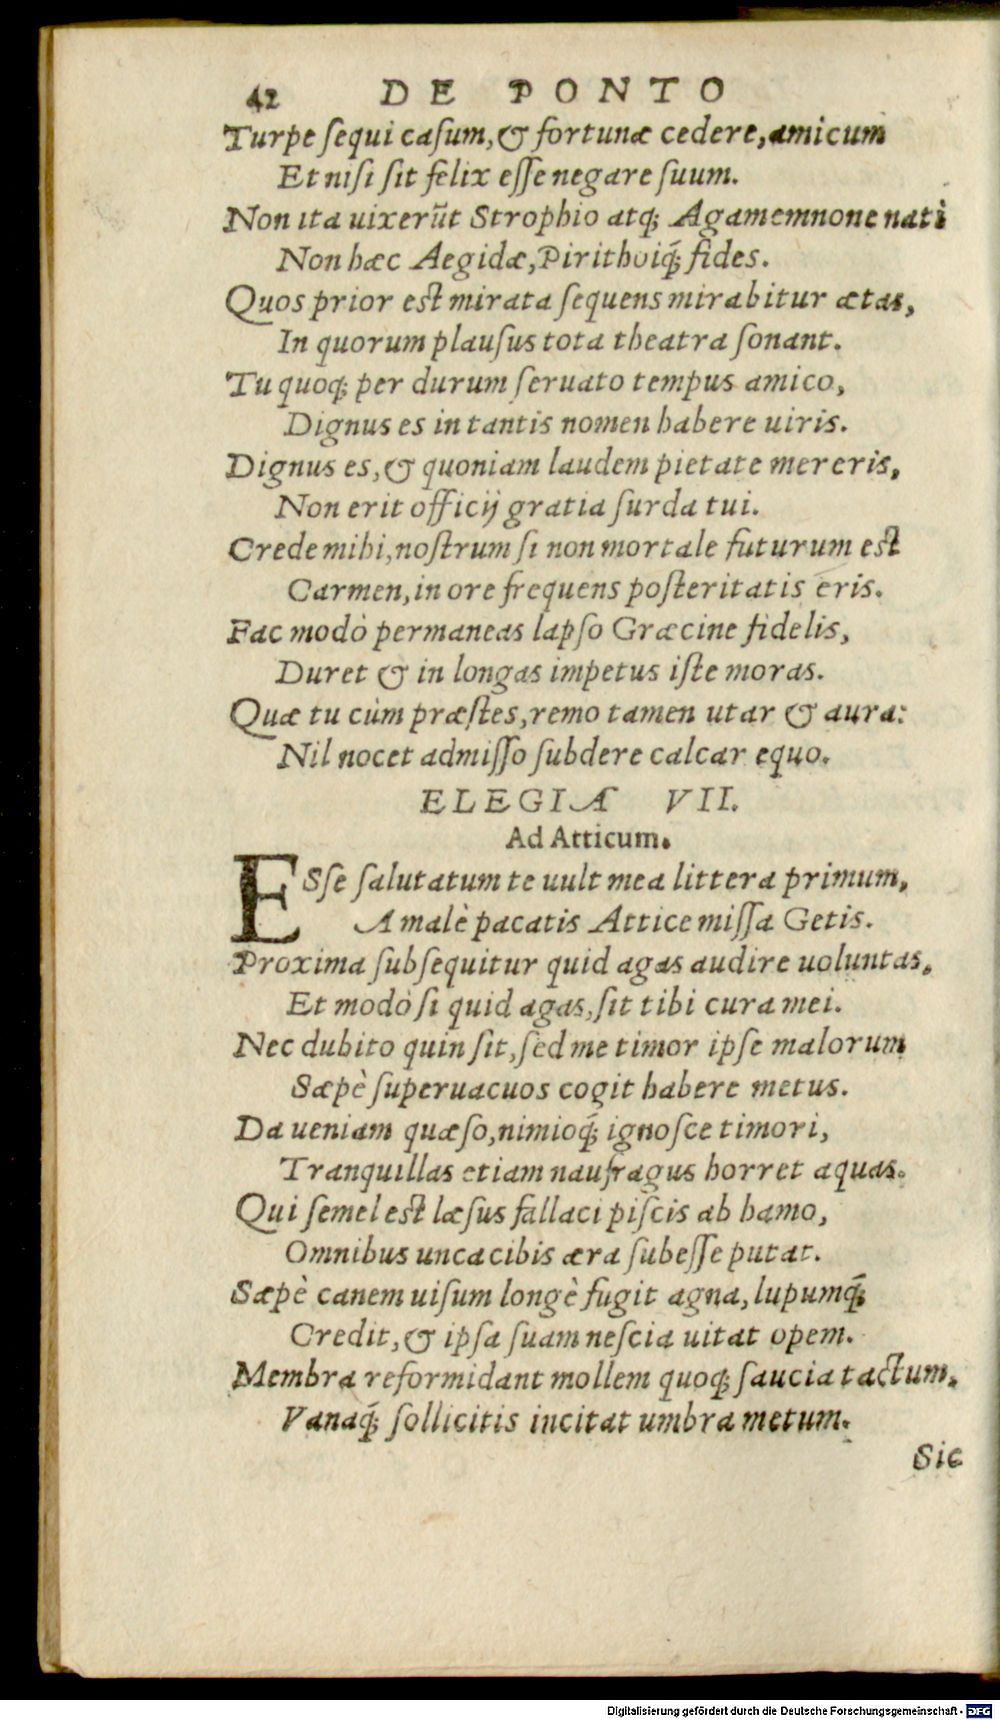 42 DE PONTO
Turpe ſequi caſum, & fortunæ cedere, amicum
Et niſi ſit felix eſſe negare ſuum.
Non ita uixerũt Strophio atq; Agamemnone nati
Non hæc Aegidæ, Pirithoiq́; fides.
Quos prior eſt mirata ſequens mirabitur ætas,
In quorum plauſus tota theatra ſonant.
Tu quoq; per durum ſeruato tempus amico,
Dignus es in tantis nomen habere uiris.
Dignus es, & quoniam laudem pietate mereris,
Non erit officij gratia ſurda tui.
Crede mihi, noſtrum ſi non mortale futurum eſt
Carmen, in ore frequens poſteritatis eris.
Fac modò permaneas lapſo Græcine fidelis,
Duret & in longas impetus iſte moras.
Quæ tu cùm præſtes, remo tamen utar & aura:
Nil nocet admiſſo ſubdere calcar equo.
ELEGIA VII.
Ad Atticum.
ESſe ſalutatum te uult mea littera primum,
A malè pacatis Attice miſſa Getis.
Proxima ſubſequitur quid agas audire uoluntas,
Et modò ſi quid agas, ſit tibi cura mei.
Nec dubito quin ſit, ſed me timor ipſe malorum
Sæpè ſuperuacuos cogit habere metus.
Da ueniam quæſo, nimioq́; ignoſce timori,
Tranquillas etiam naufragus horret aquas.
Qui ſemel eſt læſus fallaci piſcis ab hamo,
Omnibus unca cibis æra ſubeſſe putat.
Sæpè canem uiſum longè fugit agna, lupumq́;
Credit, & ipſa ſuam neſcia uitat opem.
Membra reformidant mollem quoq; ſaucia tactum,
Vanaq́; ſollicitis incitat umbra metum.
Sic
Digitalisierung gefördert durch die Deutsche Forschungsgemeinschaft - DFG